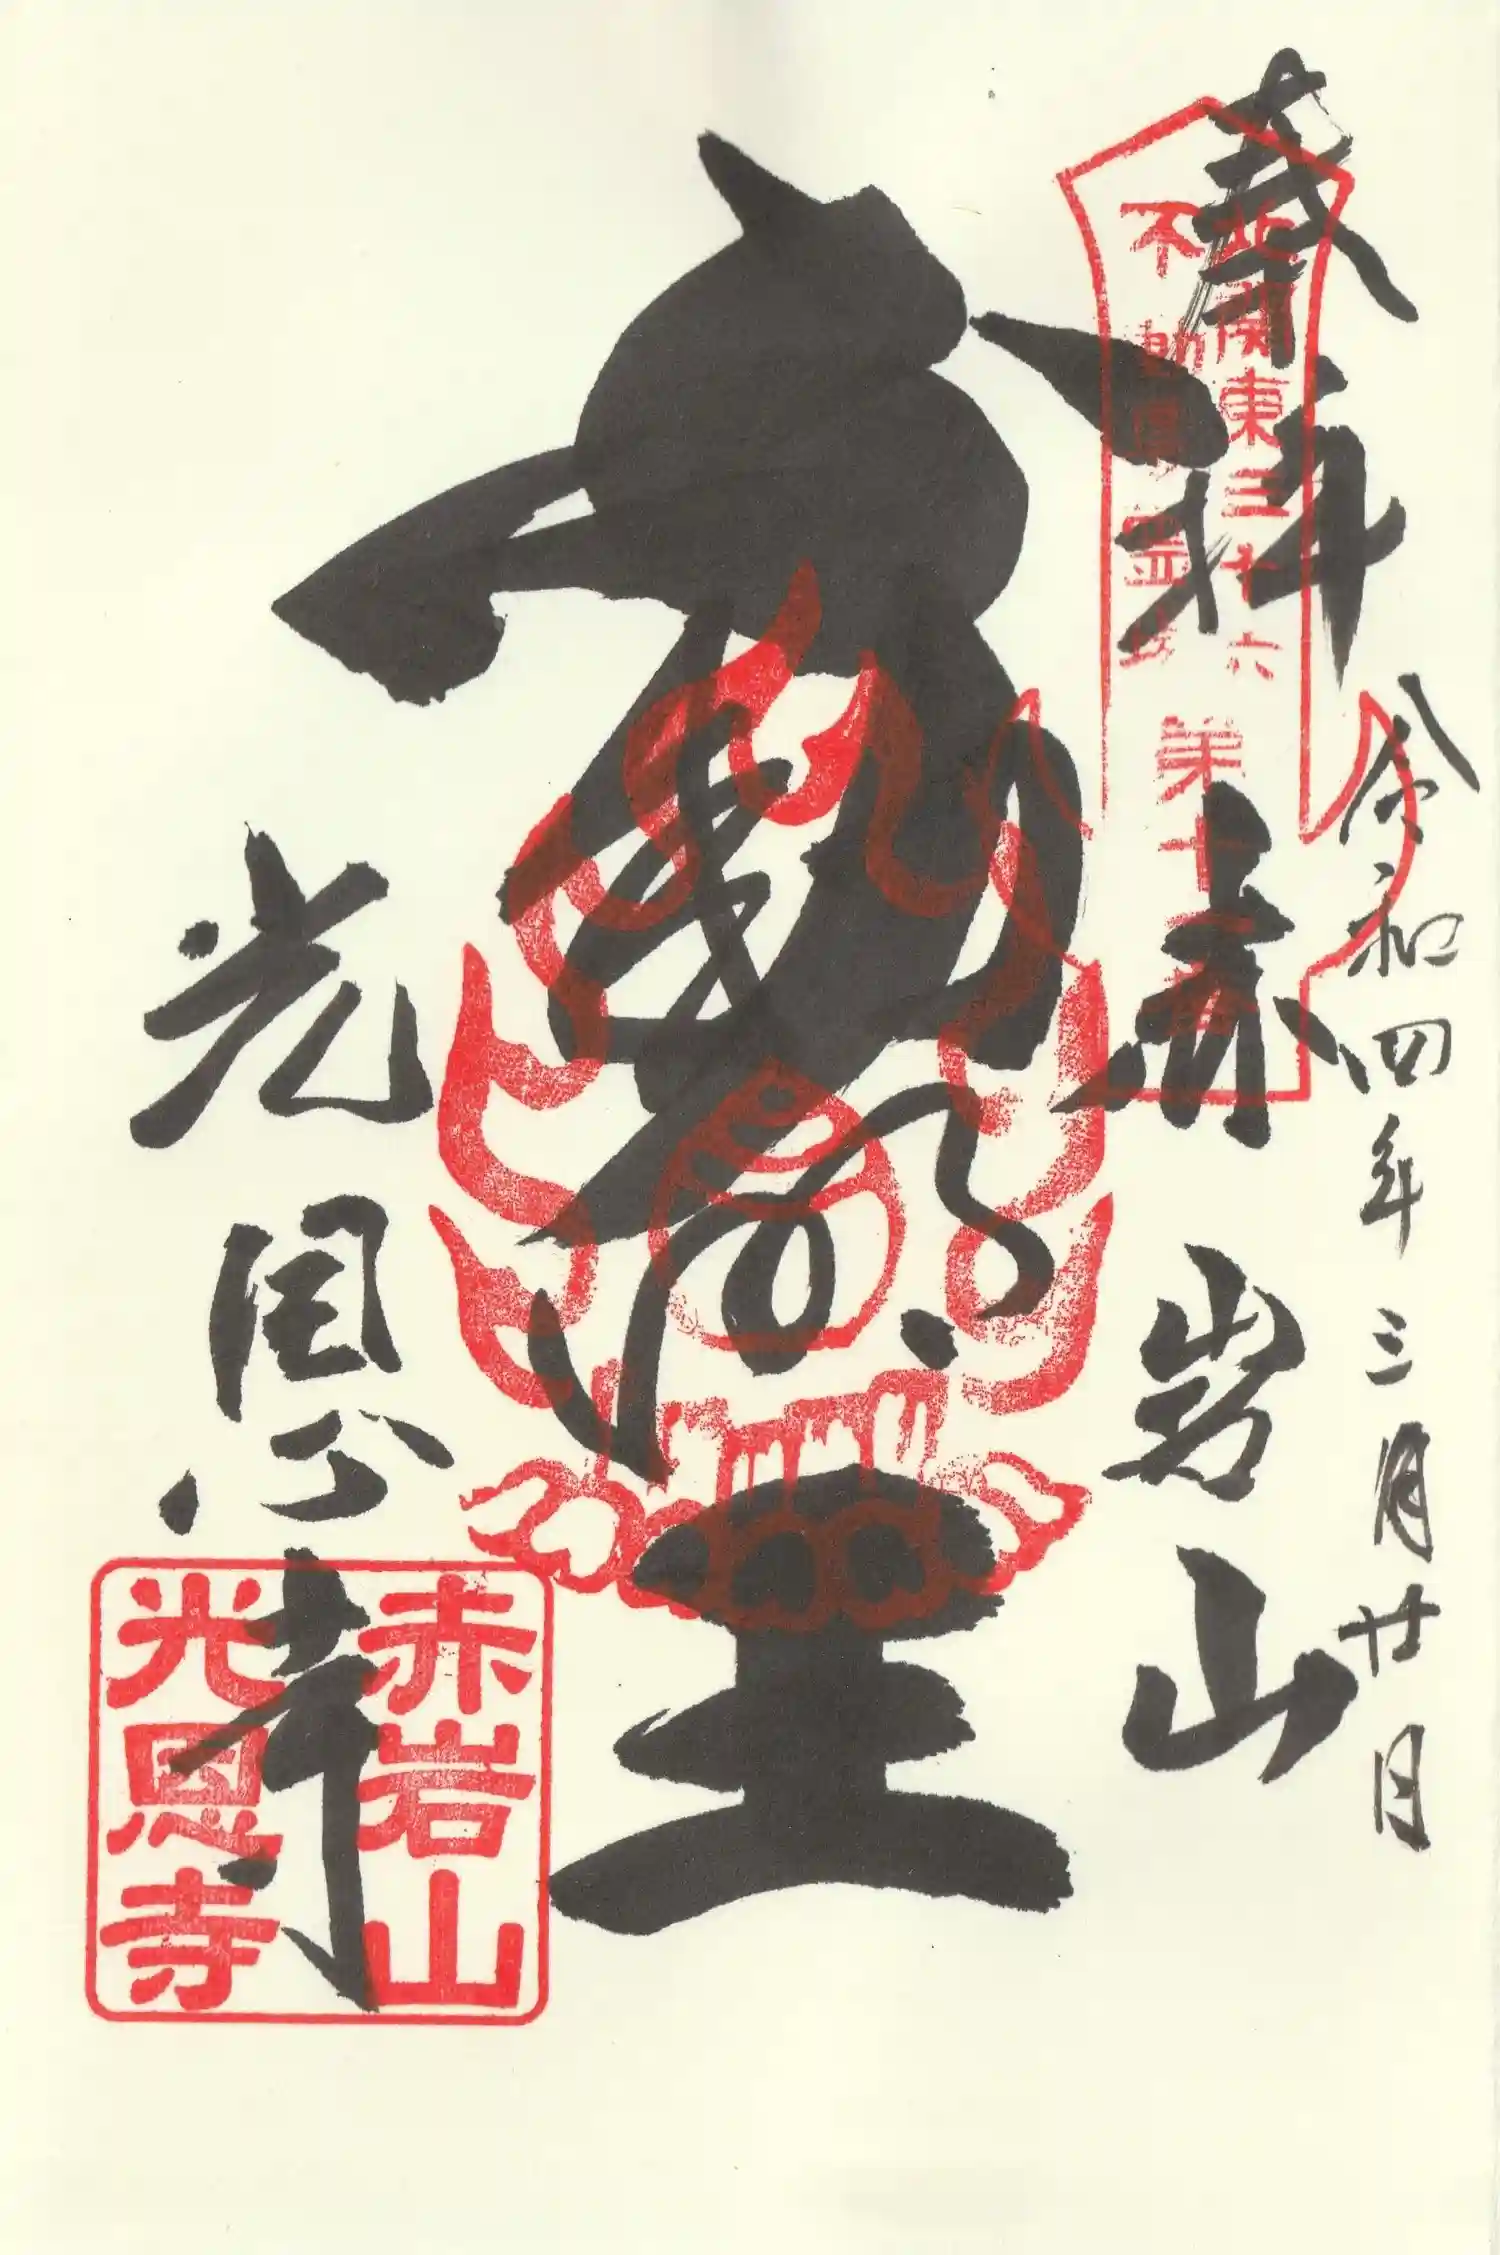 奉拝
令和四年三月廿日
北関東三十六
不動尊霊場
第十二番
赤岩山
光恩寺
赤岩山
光恩寺